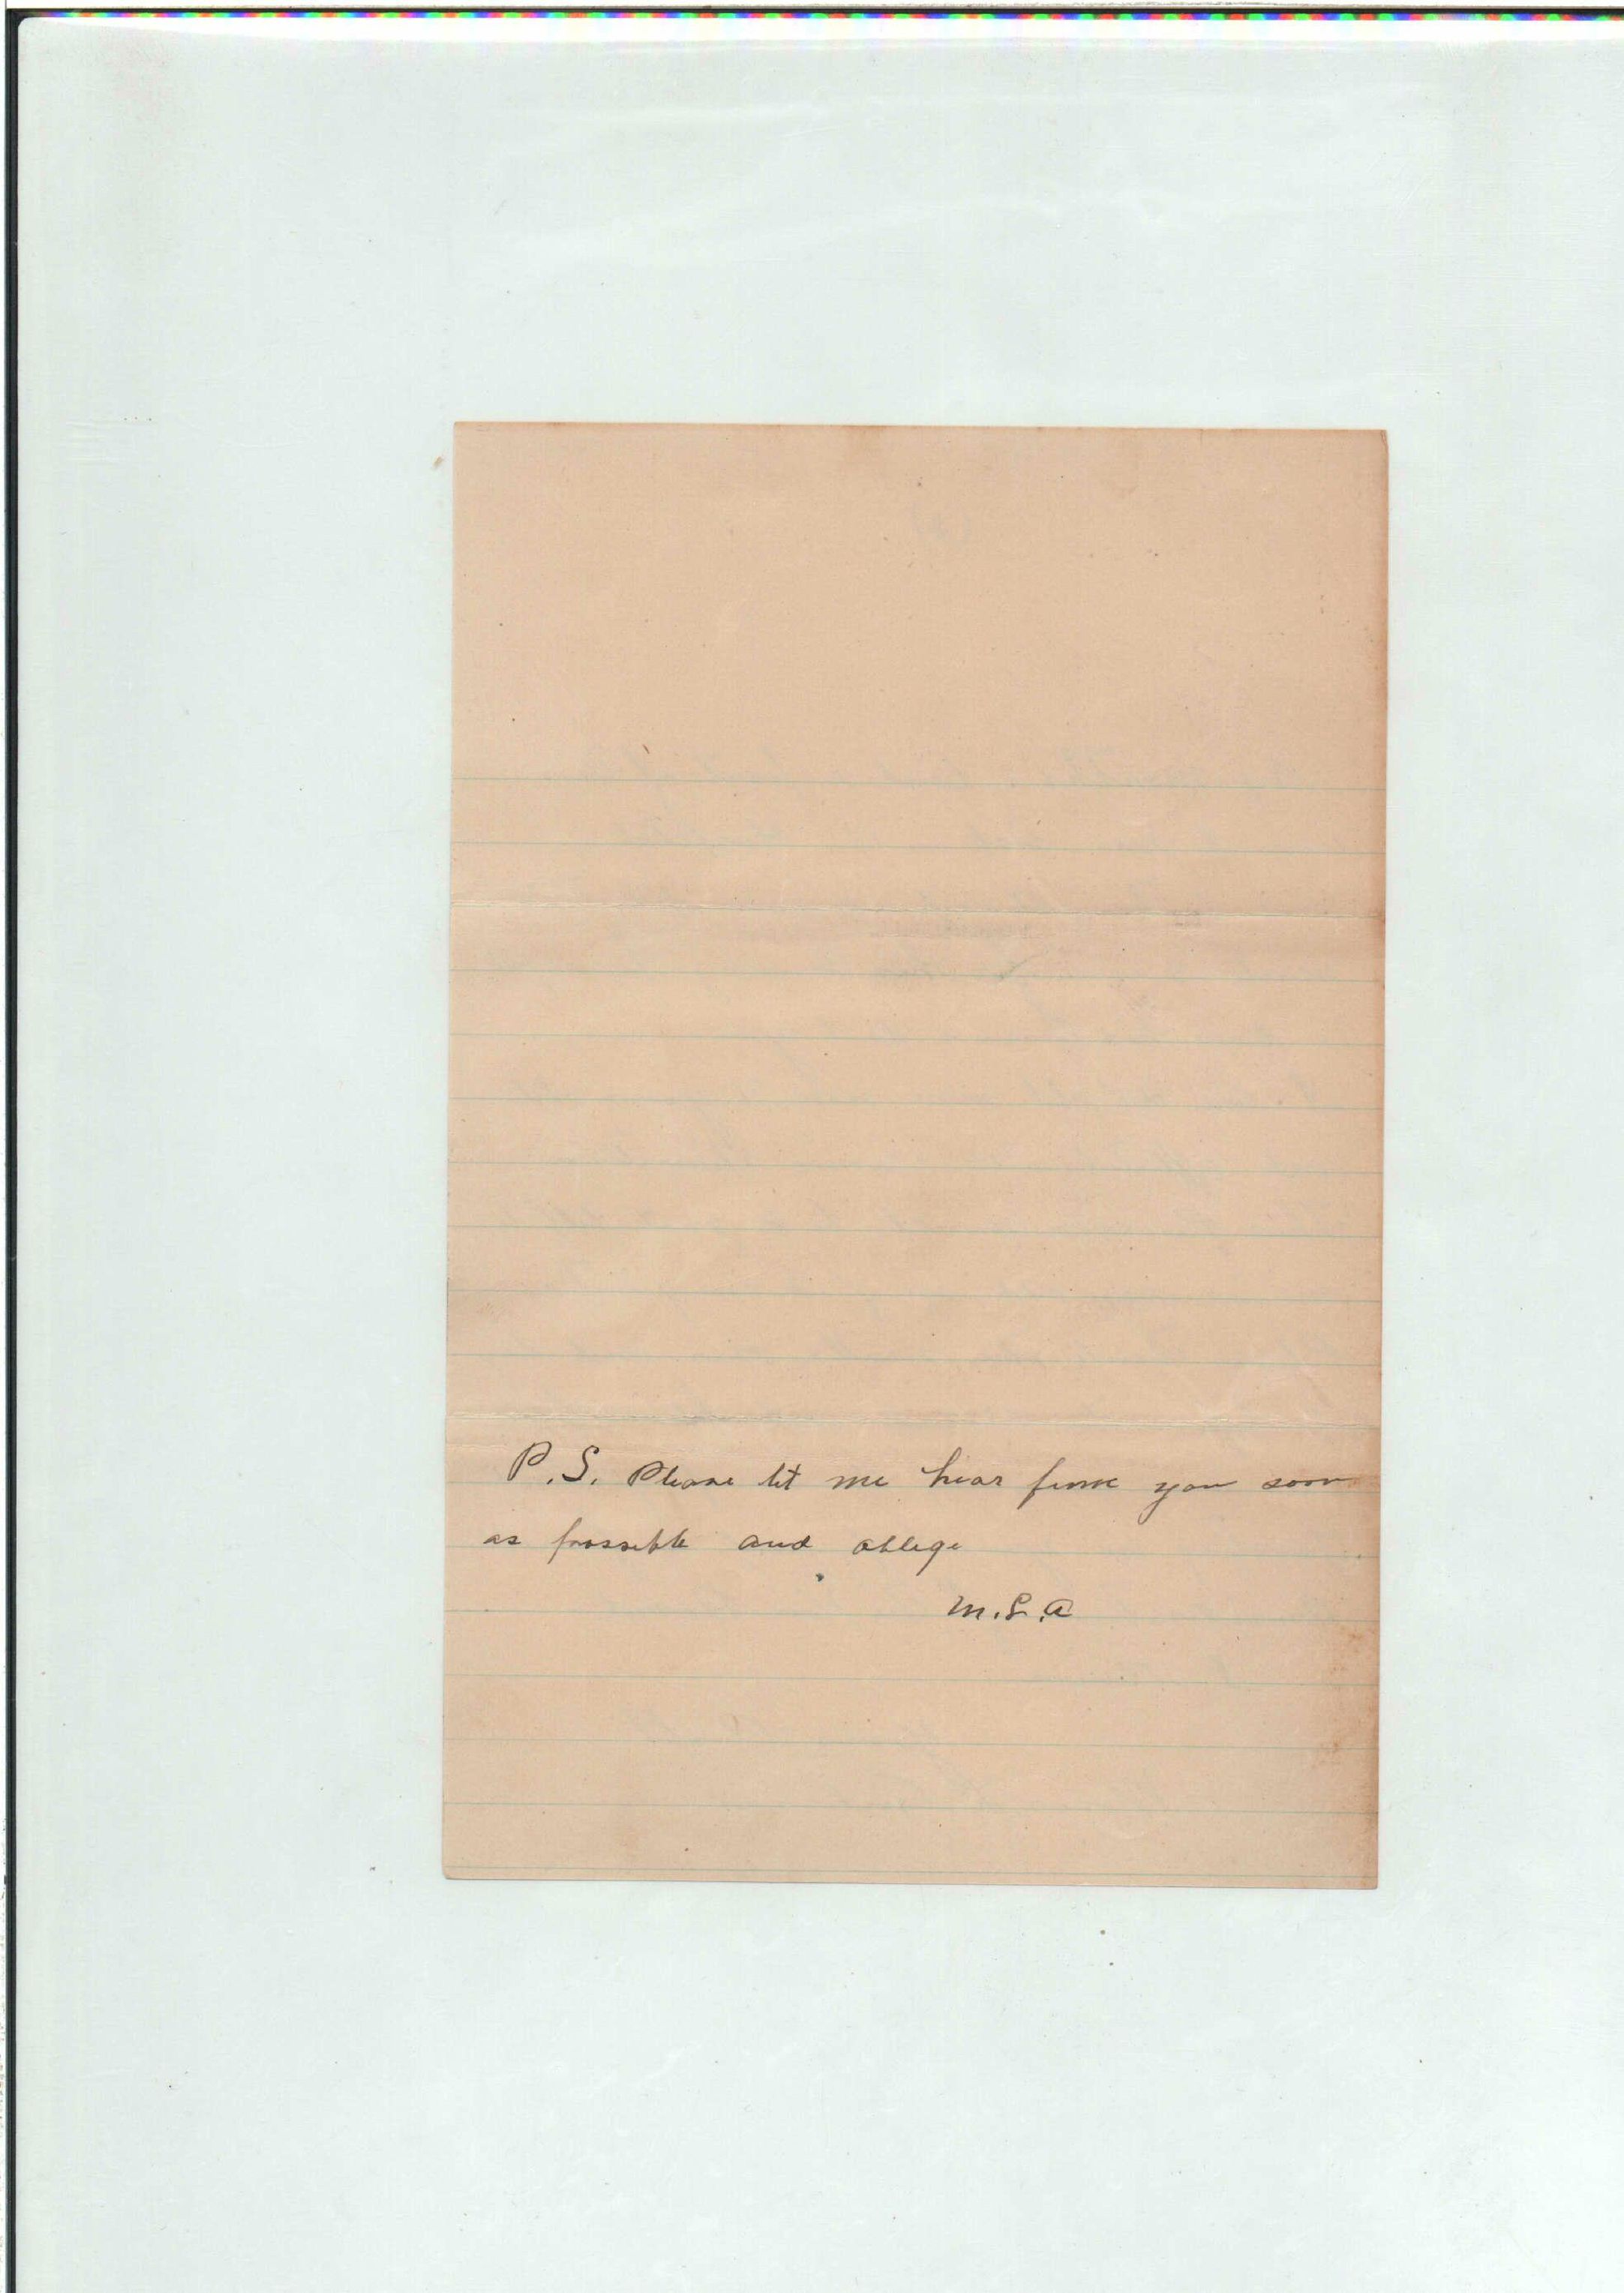 P.S. Please let me hear from you soon
as possible and oblege
M.L.A